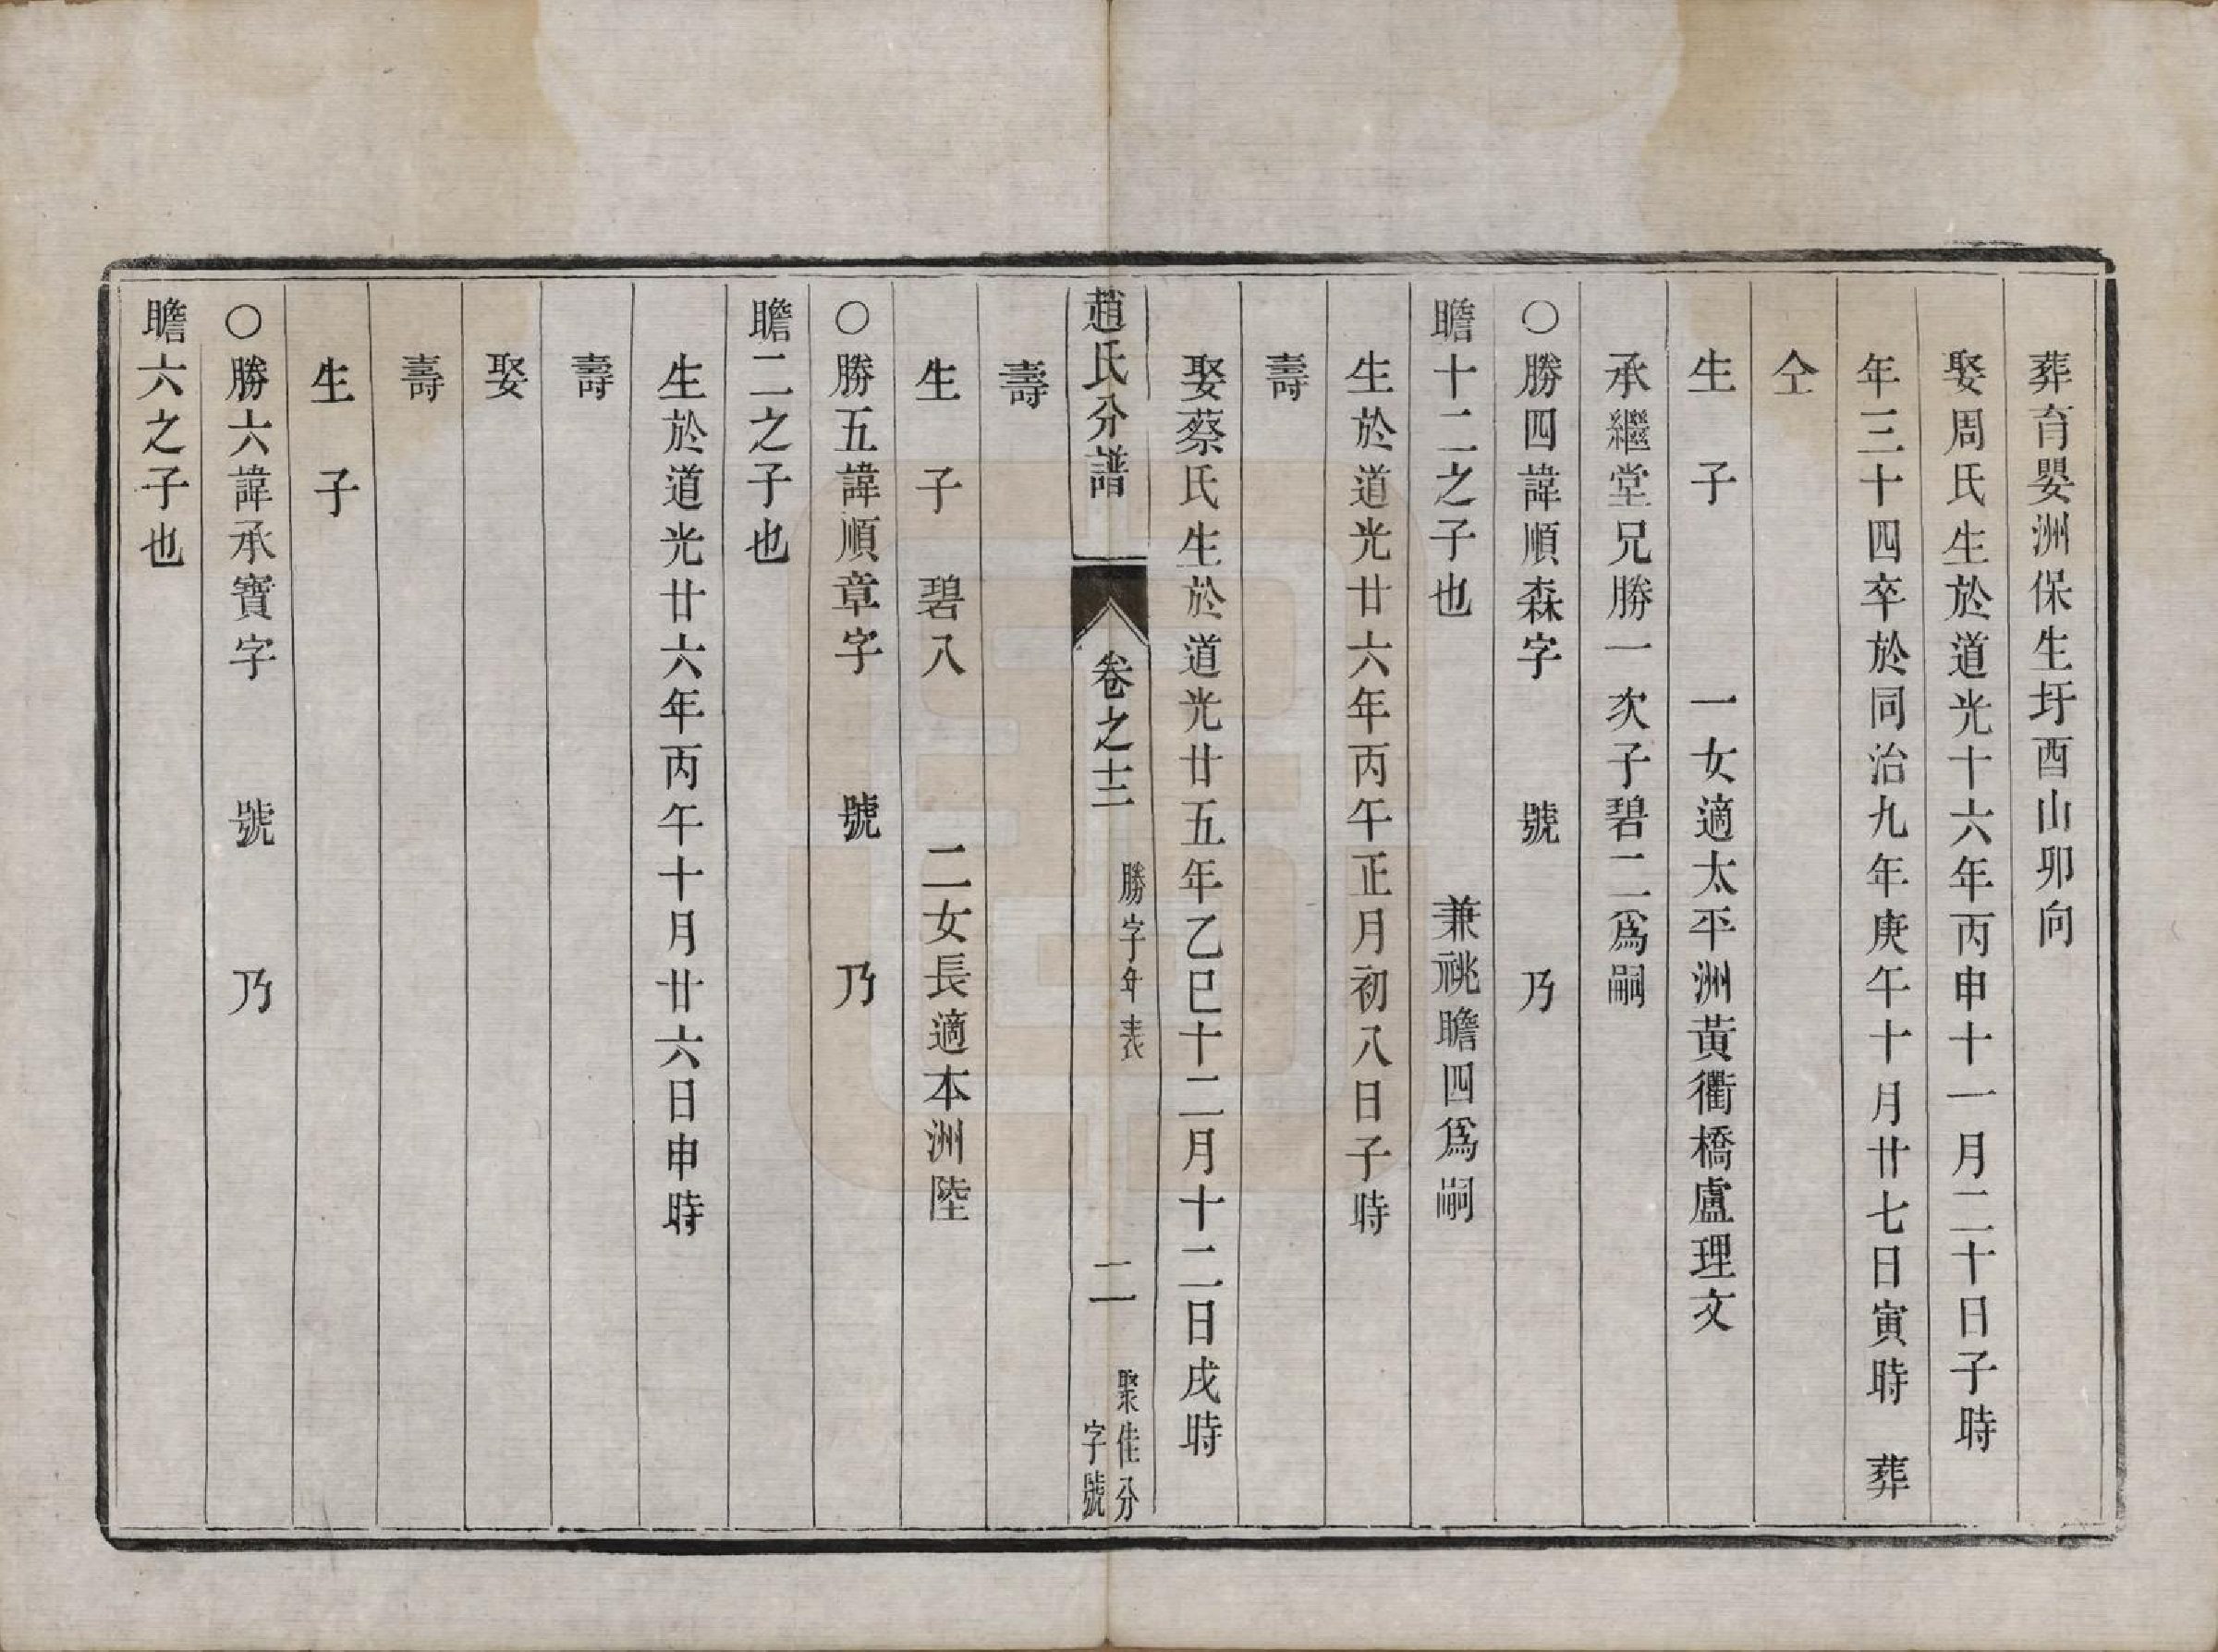 葬育嬰洲保生圩酉山卯向
娶周氏生於道光十六年丙申十一月二十日子時
年三十四卒於同治九年庚午十月廿七日寅時　葬
仝
生　子　　　一女適太平洲黃衢橋盧理文
承繼堂兄勝一次子碧二爲嗣
○勝四諱順森字　　號　　乃
瞻十二之子也　　　　　兼祧瞻四爲嗣
生於道光廿六年丙午正月初八日子時
壽
娶蔡氏生於道光廿五年乙巳十二月十二日戌時
趙氏分譜　卷之十二　勝字年表　二　聚佳分字號
壽
生　子　碧八　　　二女長適本洲陸
○勝五諱順章字　　號　　乃
瞻二之子也
生於道光廿六年丙午十月廿六日申時
壽
娶
壽
生　子
○勝六諱承寶字　　號　　乃
瞻六之子也